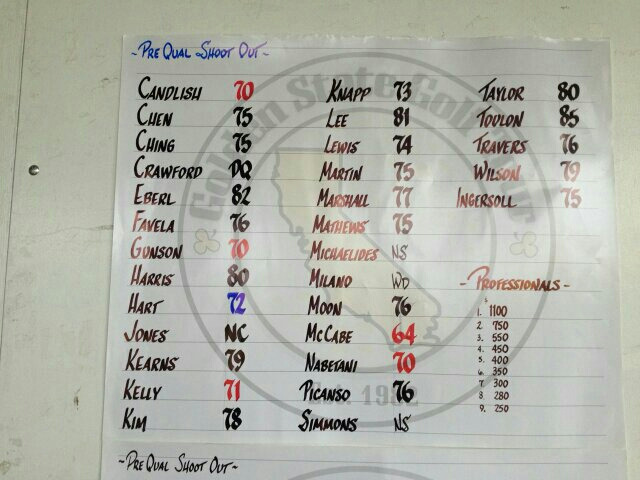 ~ Pre Qual Shoot Out ~
Candlish 70
Chen 75
Ching 75
Crawford DQ
Eberl 82
Favela 76
Gunson 70
Harris 80
Hart 72
Jones NC
Kearns 79
Kelly 71
Kim 78
Knapp 73
Lee 81
Lewis 74
Martin 75
Marshall 77
Mathews 75
Michaelides NS
Milano WD
Moon 76
McCabe 64
Nabetani 70
Picanso 76
Simmons NS
Taylor 80
Toulon 85
Travers 76
Wilson 79
Ingersoll 75
- Professionals -
$
1. 1100
2. 750
3. 550
4. 450
5. 400
6. 350
7. 300
8. 280
9. 250
Golden State Golf Tour
Est.
~ Pre Qual Shoot Out ~